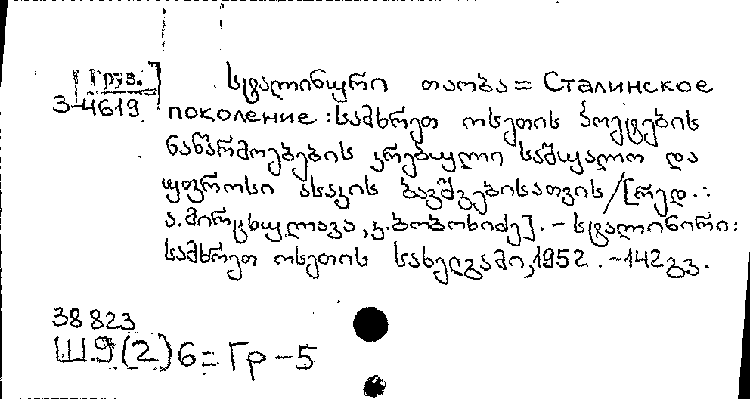 [Груз.]
3-4619
სტალინური თაობა = Сталинское
поколение : სამხრეთ ოსეთის პოეტების
ნაწარმოებების კრებული საშუალო და
უფროსი ასაკის ბავშვებისათვის / [რედ.:
ა. მირცხულავა, კ. ბობოხიძე]. – სტალინირი:
სამხრეთ ოსეთის სახელგამი, 1952. – 142 გვ.
38 823
Ш9(2)6=Гр-5